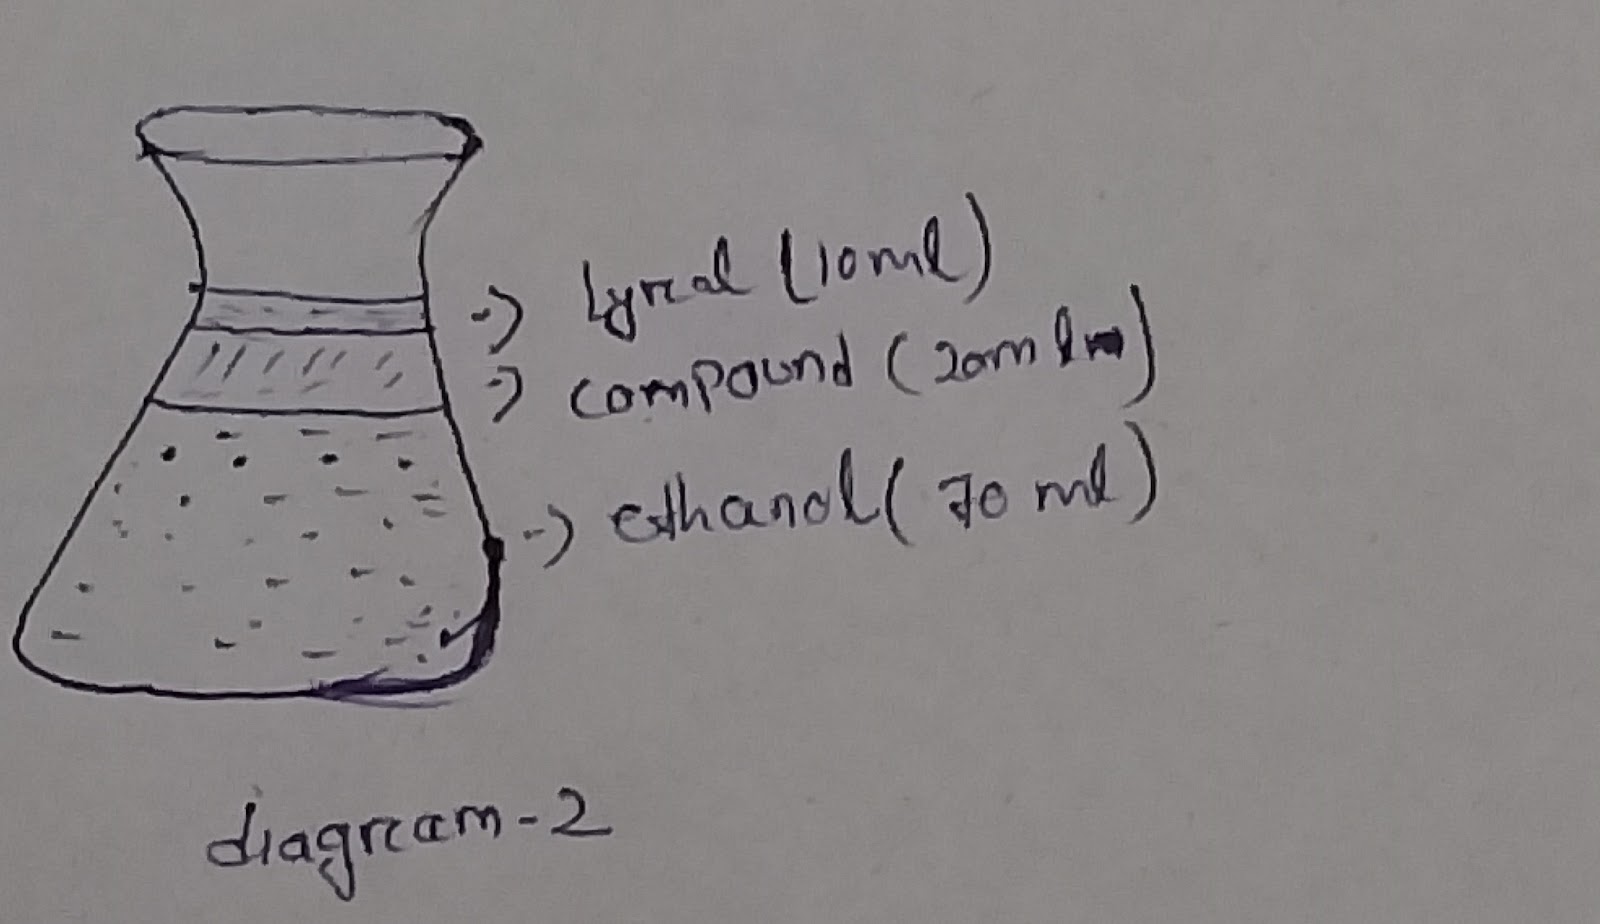 lyral (10ml)
compound (20ml)
ethanol (70 ml)
diagram-2